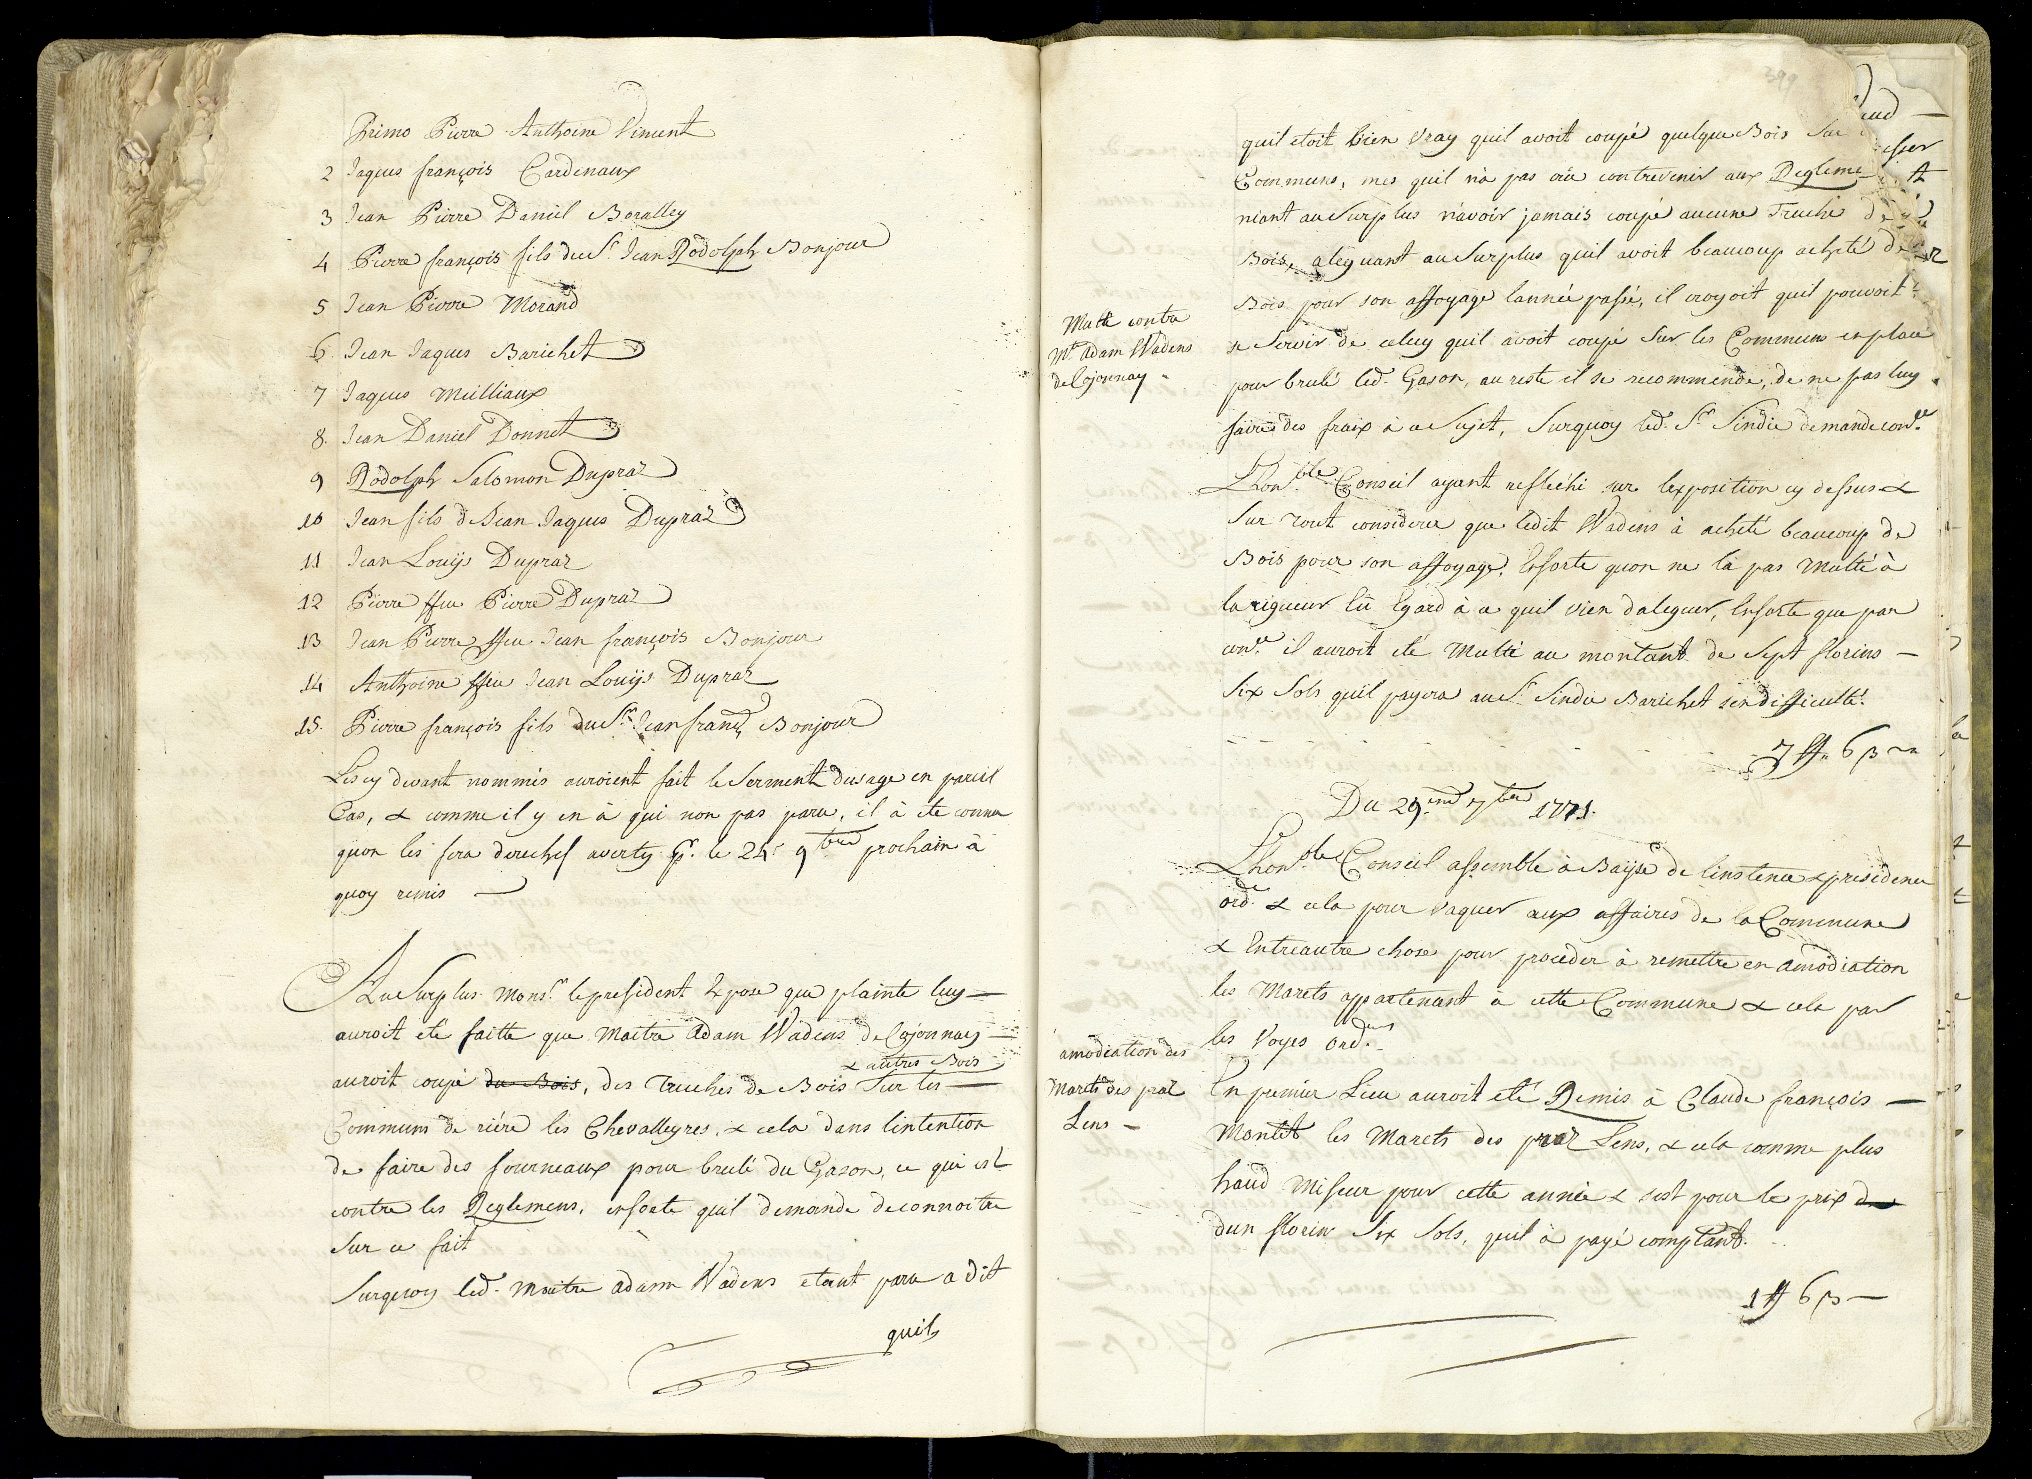 Primo Pierre Anthoine Vincent
2 Jaques françois Cardenaux
3 Jean Pierre Daniel Boralley
4 Pierre françois fils du Sr. Jean Rodolph Bonjour
5 Jean Pierre Morand
6. Jean Jaques Barichet
7 Jaques Milliaux
8. Jean Daniel Donnet
9 Rodolph Salomon Dupraz
10 Jean fils d'Jean Jaques Dupraz
11 Jean Louijs Dupraz
12 Pierre ffeu Pierre Dupraz
13 Jean Pierre ffeu Jean françois Bonjour
14 Anthoine ffeu Jean Louijs Dupraz
15. Pierre françois fils du Sr. Jean franç. Bonjour
Les cy devant nommés auroient fait le Serment dusage en pareil
Cas, & comme il y en à qui non pas paru, il à ete connu
quon les fera derechef averty pr. le 24e 9bre prochain à
quoy remis —
Au Surplus Monsr. le president Expose que plainte luy —
auroit eté faitte que Maitre Adam Wadens de Cojonnay —
& autres Bois
auroit coupé du Bois, des Truches de Bois Sur les —
Communs de riére les Chevalleyres, & cela dans lintention
de faire des fourneaux pour brulé du Gason, ce qui est
contre les Reglemens, ensorte quil demande deconnoitre
Sur ce fait
Surquoy led. Maitre Adam Wadens etant paru a dit
quil
399
quil etoit bien vray quil avoit coupé quelque Bois Sur
Communs, mes quil n'a pas crû contrevenir aux Regleme
niant au Surplus n'avoir jamais coupé aucune Truche de
Bois, aleguant au Surplus quil avoit beaucoup acheté de
Bois pour son affoyage lannée passé, il croyoit quil pouvoit
Multe contre
Mr. Adam Wadens
de Cojonnay
se Servir de celuy quil avoit coupé Sur les Communs en place
pour brulé led. Gason, au reste il se recommende, de ne pas luy
faire des fraix à ce Sujet, Surquoy led. Sr. Sindic demande con.ce
Lhon.ble Conseil ayant refléchi sur lexposition cy dessus &
Sur tout considerer que ledit Wadens à acheté beaucoup de
Bois pour son affoyage, Ensorte quon ne là pas Multé à
la rigueur Eü Egard à ce quil vien daleguer, Ensorte que par
con.ce il auroit eté Multé au montant de Sept florins —
Six Sols quil payera au Sr. Sindic Barichet sen difficulté.
7 ff. 6 ß
Du 29.eme 7bre 1771.
Lhon.ble Conseil assemblé à Baÿse de linstence & presidence
ord.e & cela pour vaquer aux affaires de la Commune
& Entreautre chose pour proceder à remettre en amodiation
les Marets appartenant à cette Commune & cela par
les voyes ord.es
amodiation des
Marets des praz
Lens —
En premier Lieu auroit eté Remis à Claude françois —
Montet les Marets des praz Lens, & cela comme plus
haud Miseur pour cette année & sest pour le prix
dun florin Six Sols, quil à payé comptant.
1 ff 6 ß —